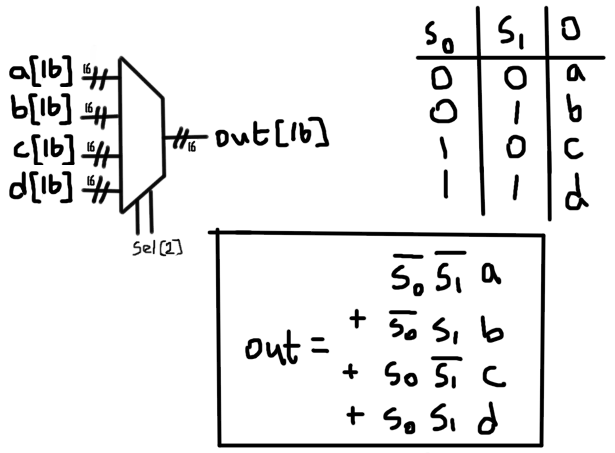 a[16] 16
b[16] 16
c[16] 16
d[16] 16
16 out[16]
Sel[2]
S₀ S₁ O
0 0 a
0 1 b
1 0 c
1 1 d
S̅₀ S̅₁ a
out = + S̅₀ S₁ b
+ S₀ S̅₁ c
+ S₀ S₁ d